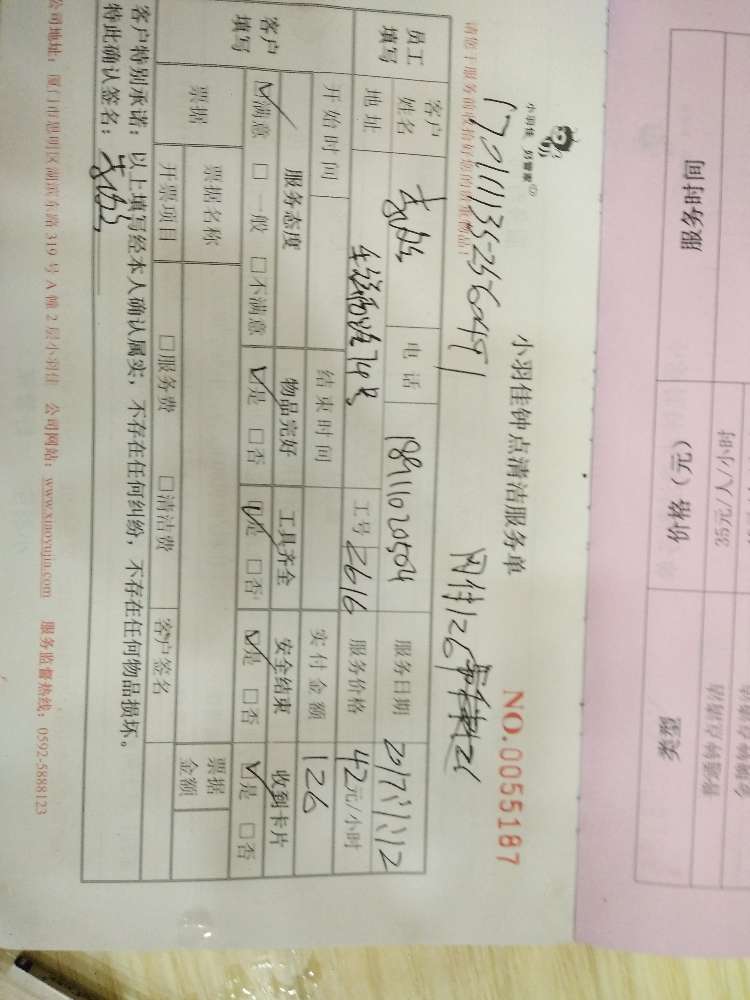 服务时间
价格（元）
类型
35元/人/小时
普通钟点清洁
小羽佳 好管家
小羽佳钟点清洁服务单
NO.0055187
171011135256049
员工填写
客户姓名
电话
18911020504
服务日期
2017.11.12
地址
74号
工号
2616
服务价格
42元/小时
开始时间
结束时间
实付金额
126
客户填写
服务态度
物品完好
工具齐全
安全结束
收到卡片
☑满意 □一般 □不满意
☑是 □否
☑是 □否
☑是 □否
☑是 □否
票据
票据名称
票据金额
开票项目
□服务费
□清洁费
客户签名
客户特别承诺：以上填写经本人确认属实，不存在任何纠纷，不存在任何物品损坏。
特此确认签名：
公司地址：厦门市思明区湖滨东路 319 号 A 幢 2 层小羽佳 公司网站：www.xiaoyujia.com 服务监督热线：0592-5888123